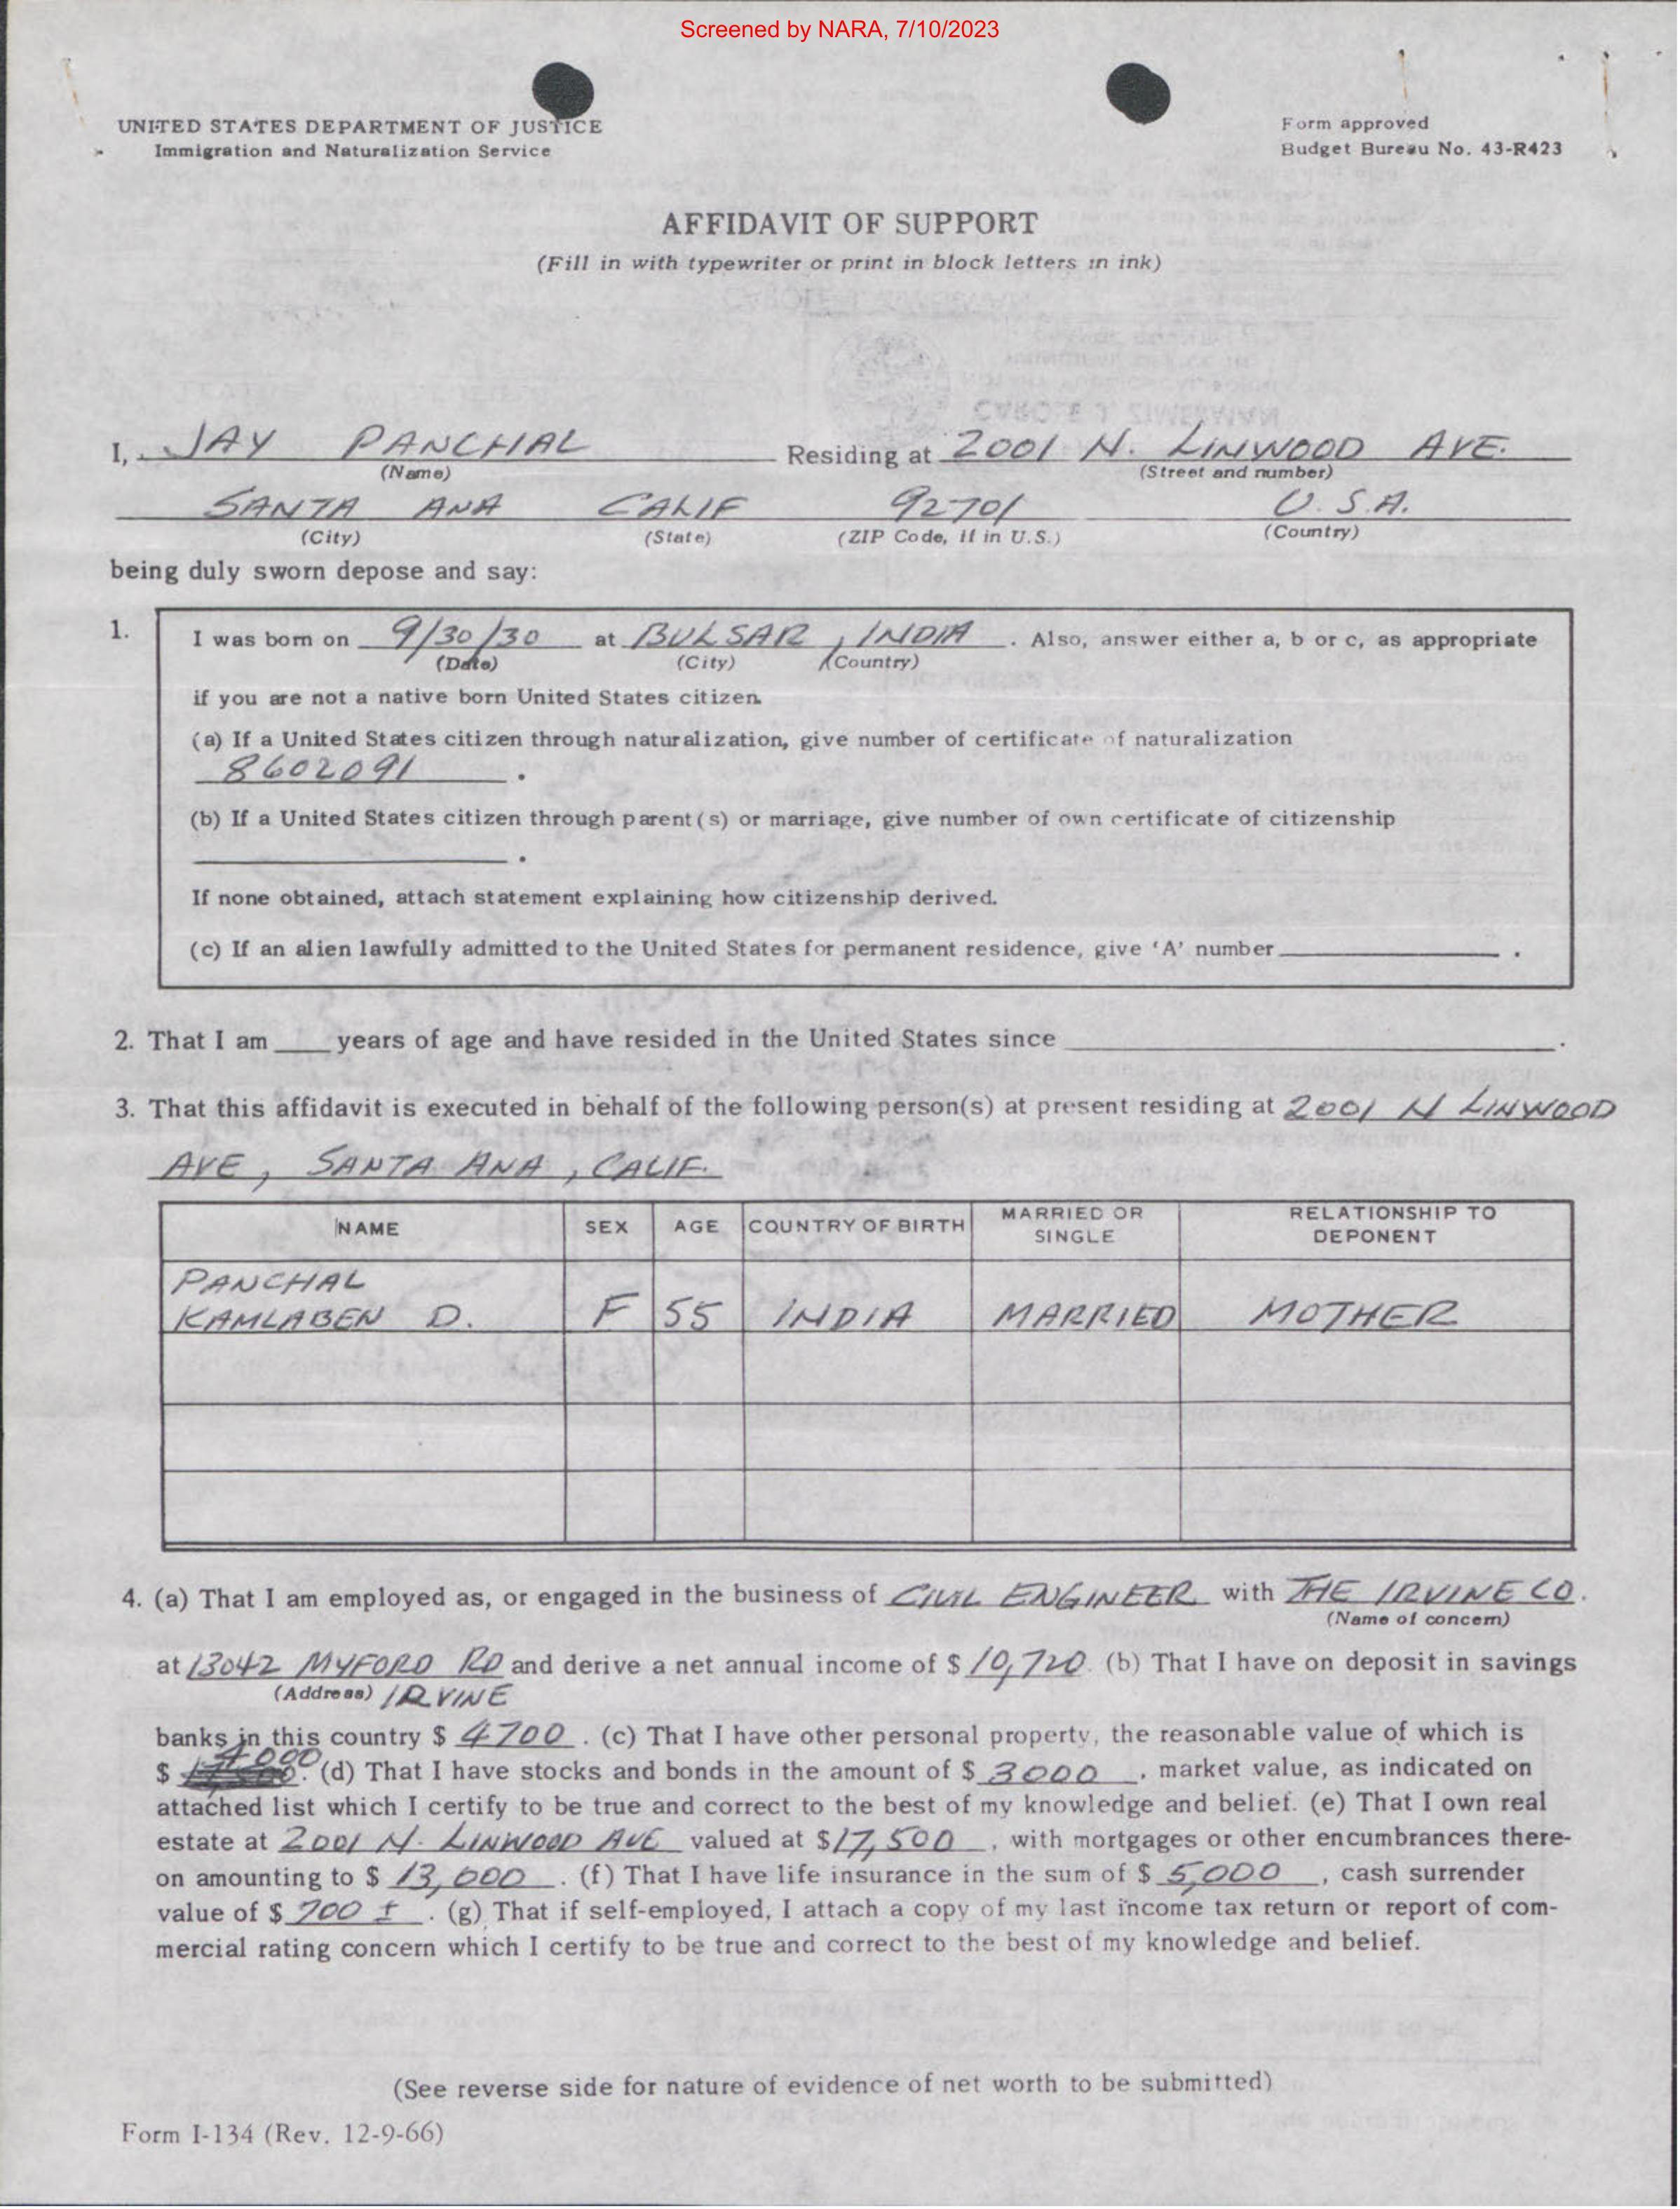 Screened by NARA, 7/10/2023
UNITED STATES DEPARTMENT OF JUSTICE
Immigration and Naturalization Service
Form approved
Budget Bureau No. 43-R423
AFFIDAVIT OF SUPPORT
(Fill in with typewriter or print in block letters in ink)
I, JAY PANCHAL Residing at 2001 N. LINWOOD AVE.
(Name) (Street and number)
SANTA ANA CALIF 92701 U.S.A.
(City) (State) (ZIP Code, if in U.S.) (Country)
being duly sworn depose and say:
1. I was born on 9/30/30 at BULSAR, INDIA. Also, answer either a, b or c, as appropriate
(Date) (City) (Country)
if you are not a native born United States citizen.
(a) If a United States citizen through naturalization, give number of certificate of naturalization
8602091.
(b) If a United States citizen through parent(s) or marriage, give number of own certificate of citizenship
.
If none obtained, attach statement explaining how citizenship derived.
(c) If an alien lawfully admitted to the United States for permanent residence, give 'A' number .
2. That I am ____ years of age and have resided in the United States since .
3. That this affidavit is executed in behalf of the following person(s) at present residing at 2001 N LINWOOD
AVE, SANTA ANA, CALIF.
NAME SEX AGE COUNTRY OF BIRTH MARRIED OR SINGLE RELATIONSHIP TO DEPONENT
PANCHAL
KAMLABEN D. F 55 INDIA MARRIED MOTHER
4. (a) That I am employed as, or engaged in the business of CIVIL ENGINEER with THE IRVINE CO.
(Name of concern)
at 13042 MYFORD RD and derive a net annual income of $ 10,720. (b) That I have on deposit in savings
(Address) IRVINE
banks in this country $ 4700. (c) That I have other personal property, the reasonable value of which is
$ 4000. (d) That I have stocks and bonds in the amount of $ 3000, market value, as indicated on
attached list which I certify to be true and correct to the best of my knowledge and belief. (e) That I own real
estate at 2001 N. LINWOOD AVE valued at $17,500, with mortgages or other encumbrances there-
on amounting to $ 13,000. (f) That I have life insurance in the sum of $ 5,000, cash surrender
value of $ 700 ±. (g) That if self-employed, I attach a copy of my last income tax return or report of com-
mercial rating concern which I certify to be true and correct to the best of my knowledge and belief.
(See reverse side for nature of evidence of net worth to be submitted)
Form I-134 (Rev. 12-9-66)